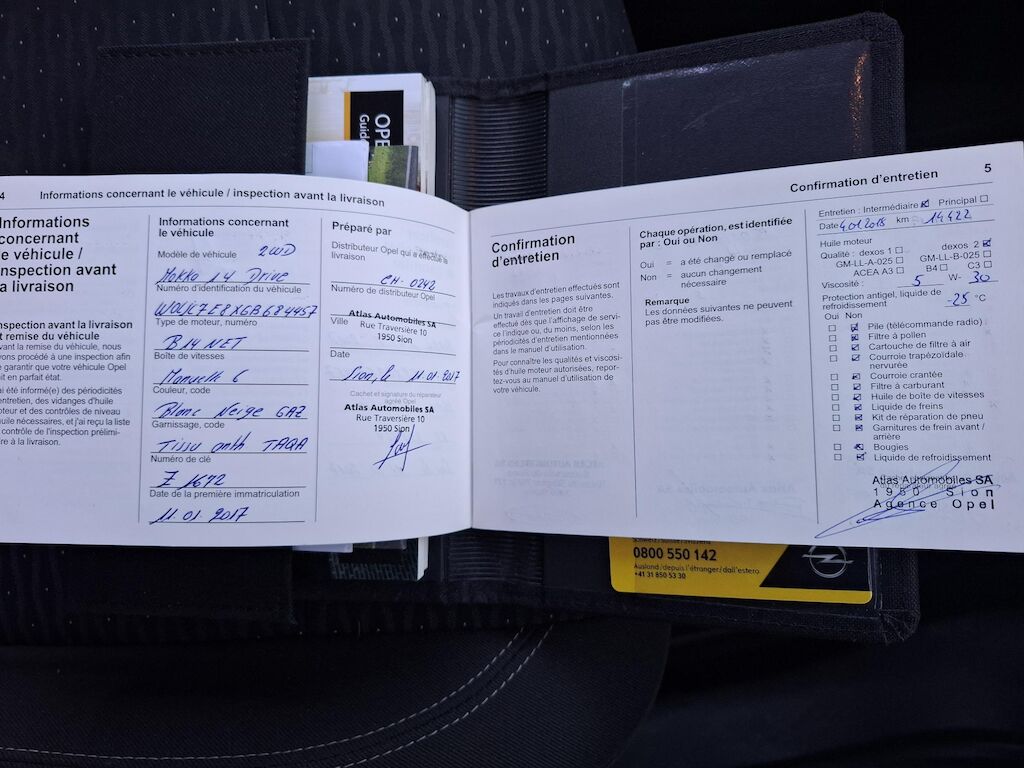 OPE
Guid
4
Informations concernant le véhicule / inspection avant la livraison
Informations
concernant
le véhicule /
inspection avant
la livraison
nspection avant la livraison
t remise du véhicule
vant la remise du véhicule, nous
vons procédé à une inspection afin
e garantir que votre véhicule Opel
oit en parfait état.
ai été informé(e) des périodicités
entretien, des vidanges d'huile
oteur et des contrôles de niveau
huile nécessaires, et j'ai reçu la liste
contrôle de l'inspection prélimi-
ire à la livraison.
Informations concernant
le véhicule
Modèle de véhicule 2WD
Mokka 1.4 Drive
Numéro d'identification du véhicule
W0LJC7E8XGB684457
Type de moteur, numéro
B14NET
Boîte de vitesses
Manuelle 6
Couleur, code
Blanc Neige GAZ
Garnissage, code
Tissu anth TAQA
Numéro de clé
Z 1672
Date de la première immatriculation
11.01.2017
Préparé par
Distributeur Opel qui a effectué la
livraison
CH-0242
Numéro de distributeur Opel
Atlas Automobiles SA
Ville Rue Traversière 10
1950 Sion
Date
Sion, le 11.01.2017
Cachet et signature du réparateur
agréé Opel
Atlas Automobiles SA
Rue Traversière 10
1950 Sion
Confirmation d'entretien
5
Confirmation
d'entretien
Les travaux d'entretien effectués sont
indiqués dans les pages suivantes.
Un travail d'entretien doit être
effectué dès que l'affichage de servi-
ce l'indique ou, du moins, selon les
périodicités d'entretien mentionnées
dans le manuel d'utilisation.
Pour connaître les qualités et viscosi-
tés d'huile moteur autorisées, repor-
tez-vous au manuel d'utilisation de
votre véhicule.
Chaque opération, est identifiée
par : Oui ou Non
Oui = a été changé ou remplacé
Non = aucun changement
nécessaire
Remarque
Les données suivantes ne peuvent
pas être modifiées.
Entretien : Intermédiaire Principal
Date 4.01.2018 km 14422
Huile moteur
Qualité : dexos 1 dexos 2
GM-LL-A-025 GM-LL-B-025
ACEA A3 B4 C3
Viscosité : 5 W- 30
Protection antigel, liquide de
refroidissement -25 °C
Oui Non
Pile (télécommande radio)
Filtre à pollen
Cartouche de filtre à air
Courroie trapézoïdale
nervurée
Courroie crantée
Filtre à carburant
Huile de boîte de vitesses
Liquide de freins
Kit de réparation de pneu
Garnitures de frein avant /
arrière
Bougies
Liquide de refroidissement
Atlas Automobiles SA
1950 Sion
Agence Opel
Schweiz/Suisse/Svizzera
0800 550 142
Ausland/depuis l'étranger/dall'estero
+41 31 850 53 30